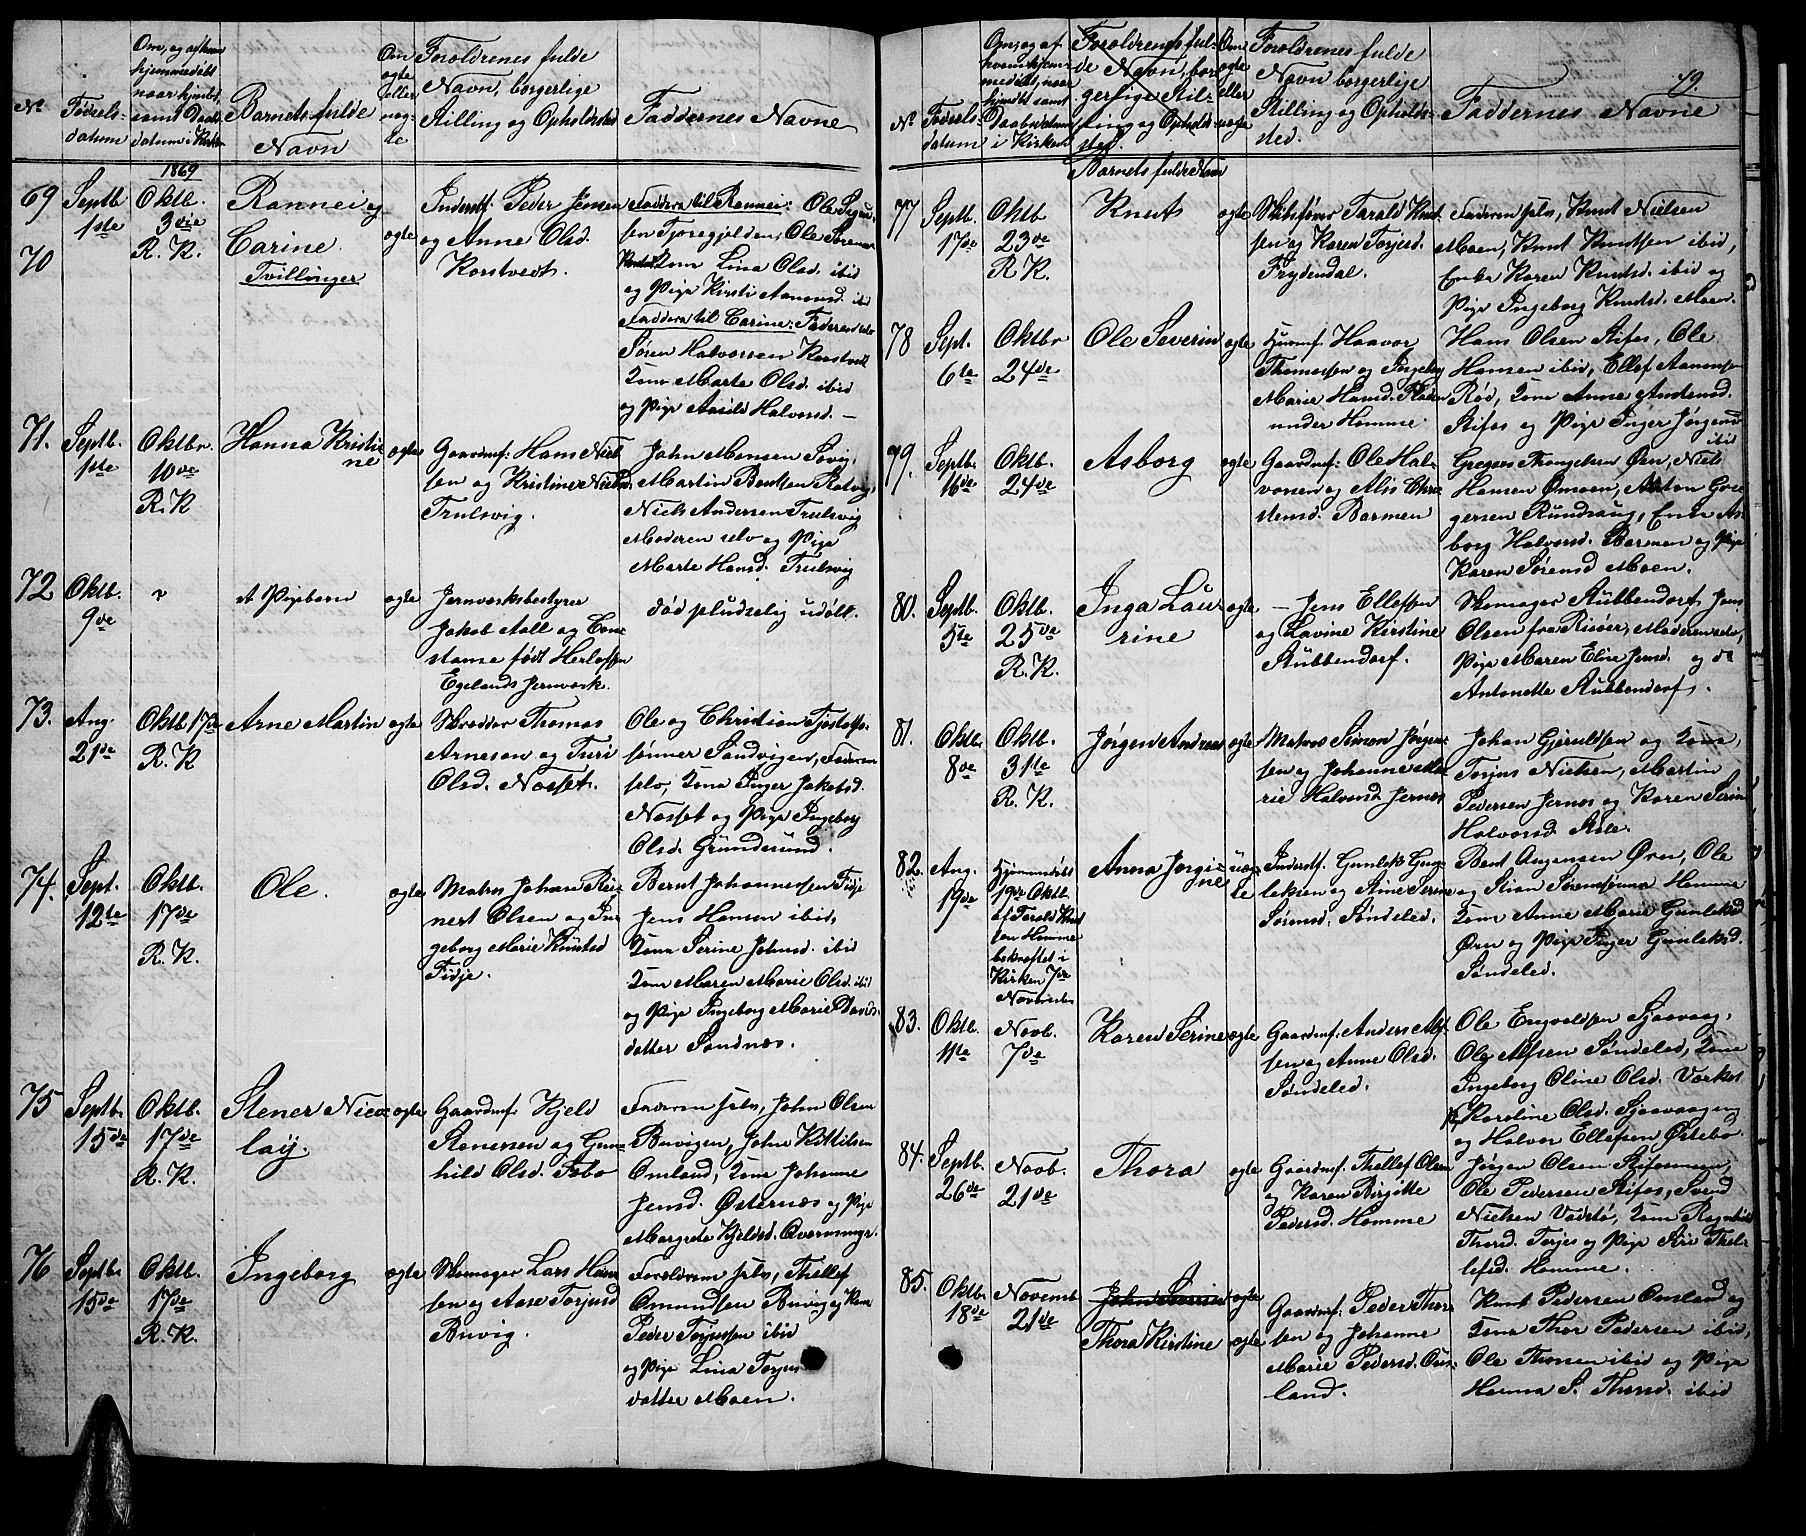 No
Fødsels-
datum
Om, og af hvem
hjemmedøbt
naar hjemdt,
samt Daabs
datum i Kirken
Barnets fulde
Navn
Om
ægte
eller
uæg-
te
Forældrenes fulde
Navn, borgerlige
Stilling og Opholdssted
Faddernes Navne
1869
69
Septb.
1ste
Oktb.
3die
R. K.
Rannei og
70
Carine.
Tvillinger
ægte
Inderstf. Peder Jensen
og Anne Olsd.
Korstvedt.
Faddere til Rannei: Ole
Kone Lina Olsd. ibid
og Pige Kirsti Aanonsd. ibid
Faddere til Carine: Faderen selv
Søren Halvorsen Korstvedt
Kone Marte Olsd. ibid
og Pige Aasild Halvorsd. –
71.
Septb.
1ste
Oktbr.
10de
R. K
Hanna Kristi-
ne
ægte
Gaardmf: Hans Niel-
sen og Kristine Nielsd.
Trulsvig.
John Monsen Savig,
Martin Bentsen
Niels Andersen Trulsvig
Moderen selv og Pige
Marte Hansd. Trulsvig
72
Oktb.
9de
"
et Pigebarn
ægte
Jernværksbestyrer
Jakob Aall og Con-
stanse født Herlofsen
Egelands Jernværk.
død pludselig udøbt.
73.
Aug.
21de
Oktb. 17de
R. K
Arne Martin
ægte
Skrædder Thomas
Arnesen og Turi
Olsd. Næsset.
Ole og Christian Tjøstolfs-
sønner Sandvigen, Faderen
selv, Kone Inger Jakobsd.
Næsset og Pige Ingeborg
Olsd. Gründesund.
74.
Sept.
12te
Oktb.
17de
R. K.
Ole.
ægte
Matros Johan Rei-
nert Olsen og In-
geborg Marie Knutsd
Fidje.
Bernt Johannessen Fidje
Jens Hansen ibid,
Kone Serine Johnsd. ibid
Kone Maren Marie Olsd. ibid
og Pige Ingeborg Marie Davids-
datter Sandnæs.
75
Septb.
15de
Oktb.
17de
R. K.
Stener Nico-
lay.
ægte
Gaardmf: Kjeld
Stenersen og Gun-
hild Olsd. Østebø
Faderen selv, John Olsen
Buvigen, John Kittilsen
Omland, Kone Johanne
Jensd. Østernæs og Pige
Margrete Kjeldsd.
76
Septb.
15de
Oktb.
17de
R. K.
Ingeborg
ægte
Skomager Lars Han-
sen og Aase Torjusd
Buvig.
Forældrene selv, Thellef
Omundsen Buvig og Kone
Peder Torjussen ibid
og Pige Lina Torjus-
datter Moen.
79.
No
Fødsels-
datum
Om, og af
hvem hjem-
medøbt, naar
hjemdt samt
Daabsdatum
i Kirken
Forældrenes ful-
de Navn, bor-
gerlige Stil-
ling og Opholds-
sted.
Barnets fulde Navn
Om
ægte
eller
uægte
Forældrenes fulde
Navn borgerlige
Stilling og Opholds-
sted.
Faddernes Navne
77
Septb.
17de
Oktb.
23de
R K.
Knut
ægte
Skibsfører Tarald Knut-
sen og Karen Torjusd.
Frydendal.
Faderen selv, Knut Nielsen
Moen, Knut Knutsen ibid,
Enke Karen Knutsd. ibid og
Pige Ingeborg Knutsd. Moen.
78
Sept.
6te
Oktbr
24de
Ole Severin
ægte
Husmf. Haavor
Thomassen og Ingeborg
Marie Hansd. Røden
under Homme.
Hans Olsen Stifos, Ole
Hansen ibid, Ellef Aanonsen
Rød, Kone Anne Andersd.
Stifos og Pige Inger Jørgensd
ibid
79.
Septb.
16de
Oktb.
24de
Asborg
ægte
Gaardmf: Ole Hal-
vorsen og Alis Chri-
stensd. Barmen
Gregers Thongelsen Ørn, Niels
Hansen Ømoen, Anton Gre-
gersen Rundhaug, Enke As-
borg Halvorsd. Barmen og Pige
Karen Sørensd Moen.
80.
Septb.
5te
Oktb.
25de
R. K.
Inga Lau-
rine
ægte
– Jens Ellefsen
og Lavine Kirstine
Stübbendorf.
Skomager Stübbendorf, Jens
Olsen fra Risør, Moderen selv,
Pige Maren Elise Jensd. og do
Antonette Stübbendorf.
81.
Oktb.
8de
Oktb.
31te
R. K.
Jørgen Andreas
ægte
Matros Simon Jørgen-
sen og Johanne Ma-
rie Halvorsd. Jernes
Johan Gjeruldsen og Kone,
Torjus Nielsen, Martin
Pedersen Jernes og Karen Serine
Halvorsd.
82.
Aug.
19de
Hjemmedøbt
19de Oktb.
af Tarald Knut-
sen Homme
bekræftet i
Kirken 7de
November
Anna Jørgi-
ne
uæg-
te
Inderstf. Gunlek Gun-
leksen og Anne Serine
Sørensd. Søndeled.
Bent Aagensen Ørn, Ole
og Stian Sørensønner Homme
Kone Anne Marie Gunleksd
Ørn og Pige Inger Gunleksd.
Søndeled.
83.
Oktb.
11te
Novb.
7de
Karen Serine
ægte
Gaardmf. Anders Alf-
sen og Anne Olsd.
Søndeled.
Ole Engvoldsen Sjaavaag,
Ole Alfsen Søndeled, Kone
Ingeborg Oline Olsd. Værket
Karoline Olsd. Sjaavaagen,
og Halvor Ellefsen Østebø.
84.
Septb.
26de
Novb.
21de
Thora
ægte
Gaardmf. Thellef Olsen
og Karen Birgitte
Pedersd. Homme
Jørgen Olsen Stifosmoen,
Ole Pedersen Stifos, Svend
Nielsen Vadstø, Kone Ragnhild
Thorsd. Torjus og Pige Siri Thel-
lefsd. Homme.
85.
Oktb.
18de
Novemb
21de
Thora Kirstine
ægte
ægte
Gaardmf: Peder Thor-
sen og Johanne
Marie Pedersd. Om-
land.
Knut Pedersen Omland og
Kone Thor Pedersen ibid,
Ole Thorsen ibid og Pige
Hanna S. Thorsd. ibid